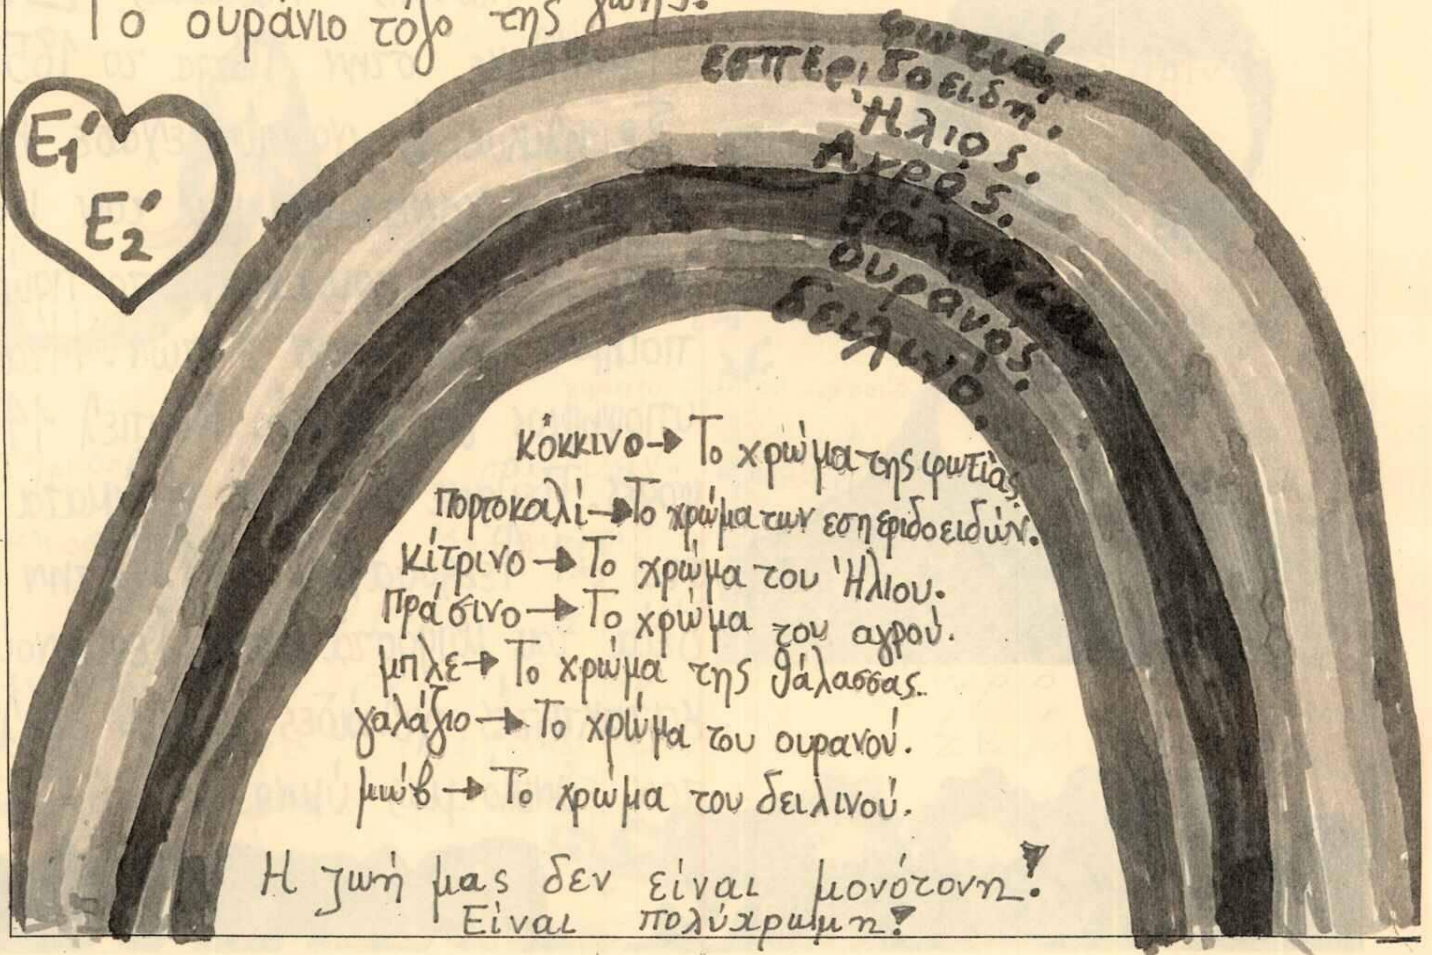 Το ουράνιο τόξο της ζωής.
Ε'1
Ε'2
φωτιά.
εσπεριδοειδή.
Ήλιος.
Αγρός.
θάλασσα.
ουρανός.
δειλινό.
κόκκινο → Το χρώμα της φωτιάς.
πορτοκαλί → Το χρώμα των εσπεριδοειδών.
κίτρινο → Το χρώμα του Ήλιου.
πράσινο → Το χρώμα του αγρού.
μπλε → Το χρώμα της θάλασσας.
γαλάζιο → Το χρώμα του ουρανού.
μώβ → Το χρώμα του δειλινού.
Η ζωή μας δεν είναι μονότονη!
Είναι πολύχρωμη!